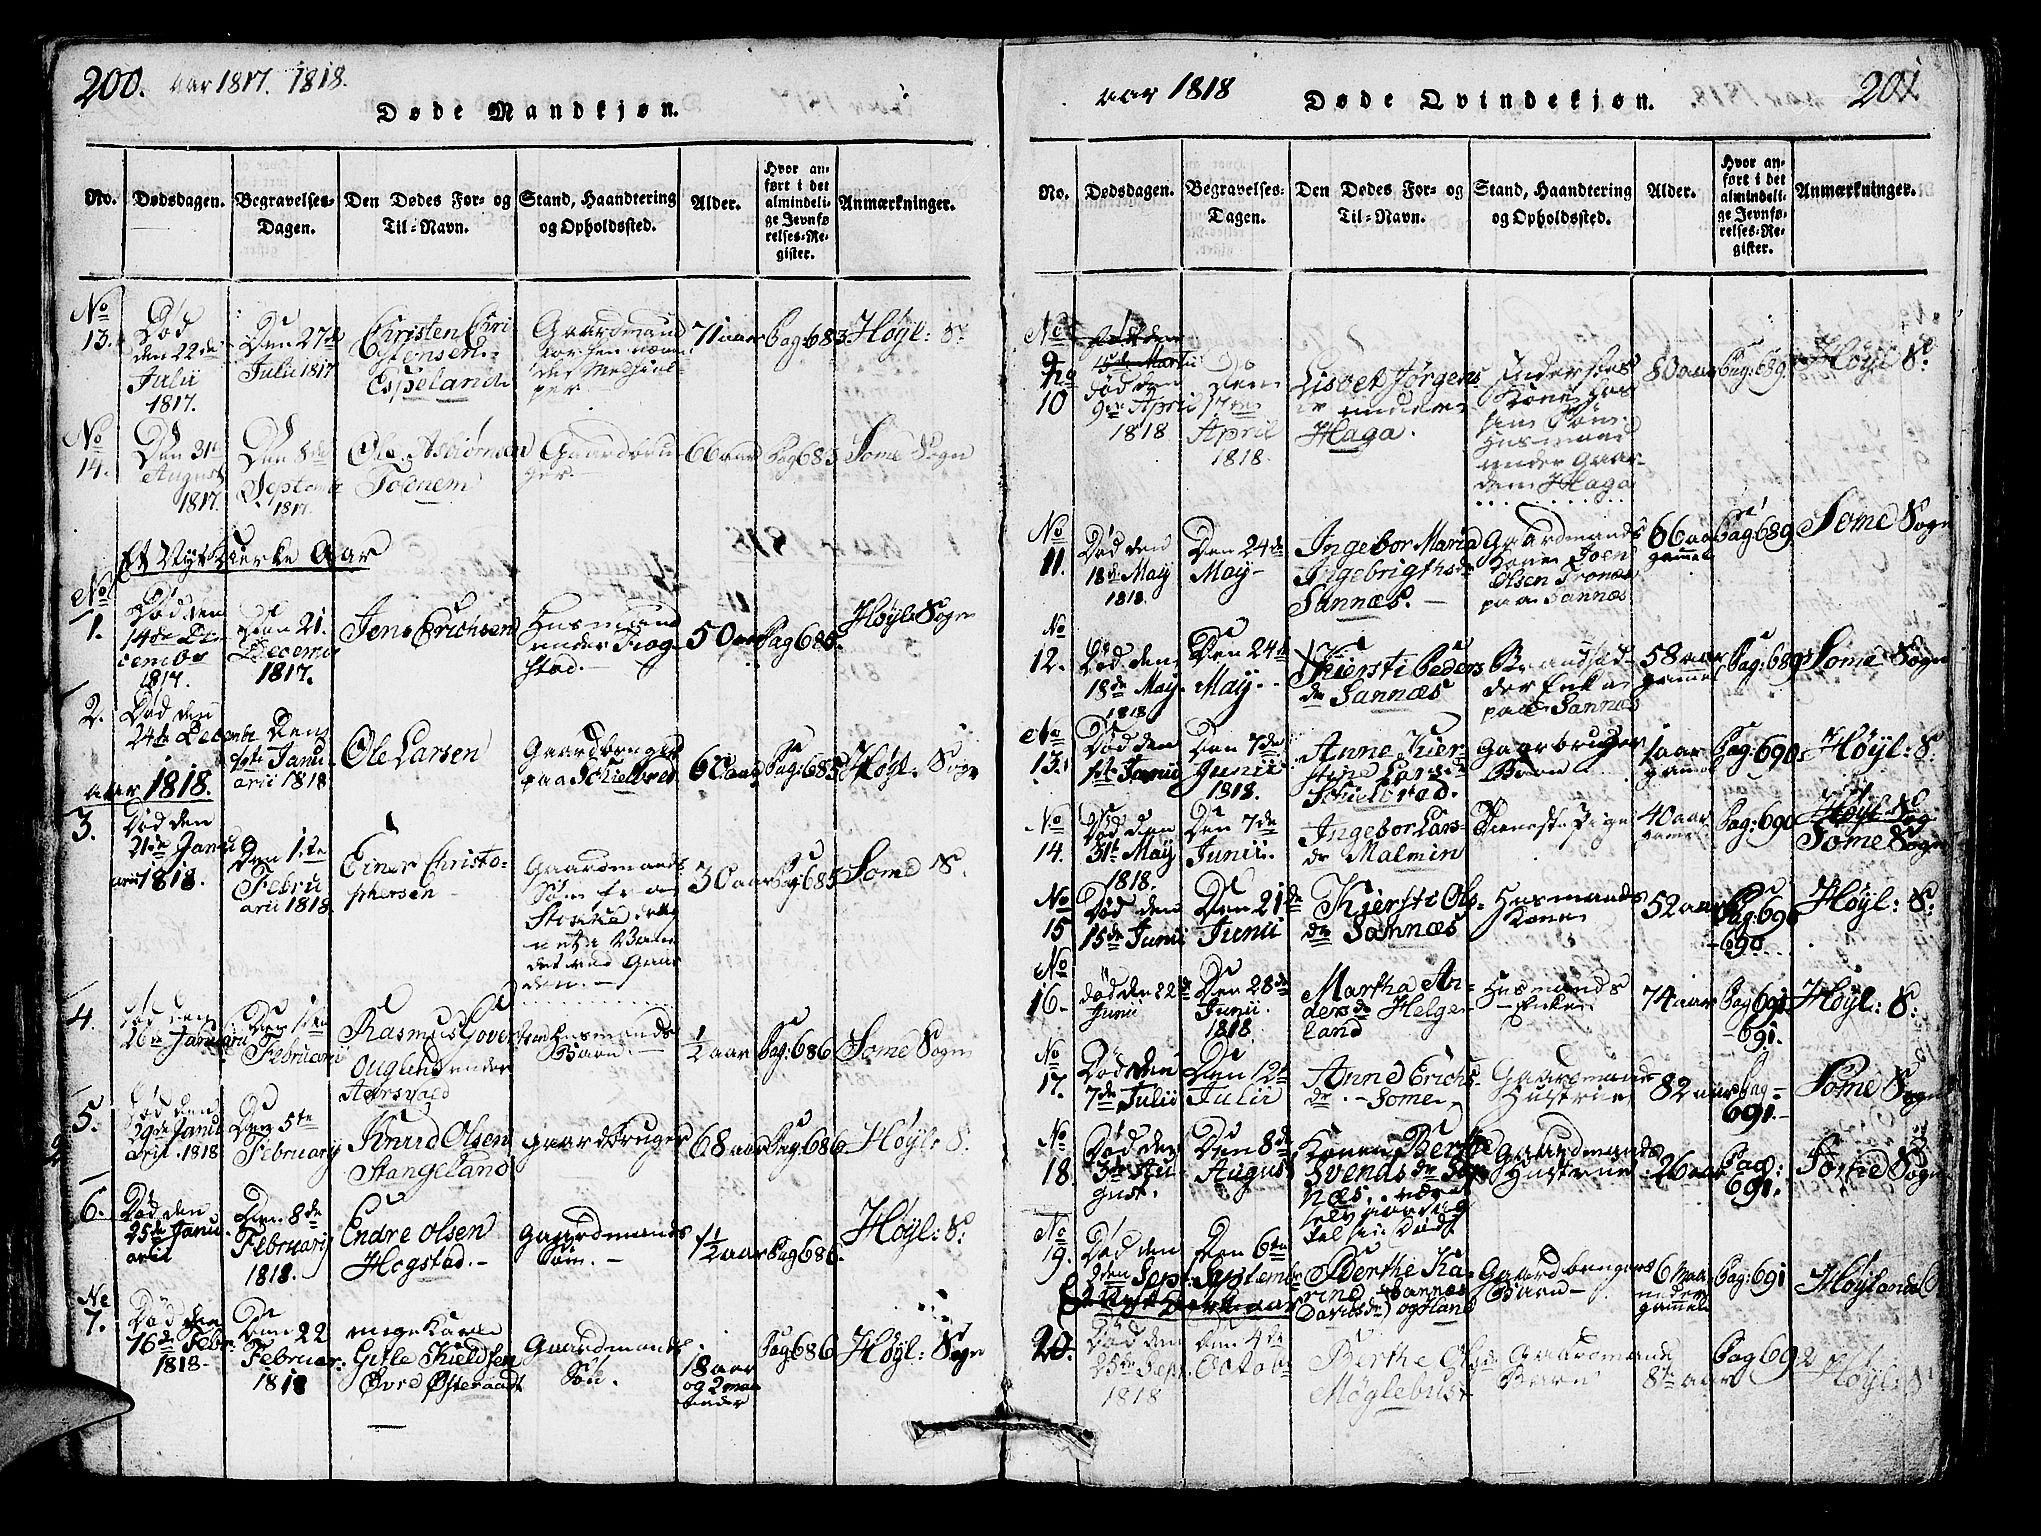 200. aar 1817. 1818.
Døde Mandkjøn.
No.
Dødsdagen.
Begravelses-
Dagen.
Den Dødes For- og
Til-Navn.
Stand, Haandtering
og Opholdssted.
Alder.
Hvor an-
ført i det
almindeli-
ge Jevnfø
relses-Re-
gister.
Anmærkninger.
No
13.
Død
den 22de
Julii
1817.
Den 27de
Julii 1817
Christen Chri
stensen
Espeland
Gaardmand
71 aar
Pag 683
Høyl: S.
No
14.
Den 31te
August
1817.
Den 8de
Septemb
1817.
Ole Asbiørnsen
Foenem
Gaardbru
ger
66 aar
Pag 683
Some Sogn
Et Nyt Kierke Aar
No
1.
Død den
14de De-
cember
1817.
Den 21.
Decemb
1817.
Jens Erichsen
Husmand
under Frog
stad.
50 aar
Pag 685.
Høyl: Sogn
2.
Død den
24de Decemb
Den
1ste Janu
arii 1818
Ole Larsen
Gaardbruger
paa Skielbred
60 aar
Pag: 685
Høyl: Sogn
aar 1818.
3.
Død den
21de Janu
arii 1818.
Den 1ste
Febru
arii 1818.
Einer Christo-
phersen
Gaardmands
Søn fra
Stokke
30 aar
Pag 685
Some S.
4.
Død den
26de Januarii
Den 1ste
Februarii
Rasmus Govert
Ouglend under
Aarsvold
Husmands
Barn.
1/2 aar
Pag: 686
Some Sogn
5.
Død den
29de Janu
arii. 1818
Den 5te
February
Knud Olsen
Stangeland
Gaardbruger
68 aar
Pag: 686
Høyl: S.
6.
Død den
25de Janu
arii
Den 8de
February
1818.
Endre Olsen
Hogstad.
Gaardmands
Søn.
1 1/2 aar
Pag 686.
Høyl: S.
No
7.
Død den
16de Febr:
1818.
Den 22
Februar:
1818
unge Karl
Gitle Skieldsen
Øvre Østeraadt
Gaardmands
Søn.
18 aar
og 2 maa
neder
Pag 686
Høyl: Sogn
aar 1818
Døde Qvindekjøn.
201.
No.
Dødsdagen.
Begravelses-
Dagen.
Den Dødes For- og
Til-Navn.
Stand, Haandtering
og Opholdssted.
Alder.
Hvor an-
ført i det
almindeli-
ge Jevnfø-
relses-Re-
gister.
Anmærkninger.
No
9
No
10
død den
9de April
1818
Den
17de
April
1818.
Lisbet Jørgens
dr under
Haga.
Kone hos
sin Søn
Husmand
under Gaar-
den Haga
80 aar
Pag: 689
Høyl S.
No
11.
Død den
18de May
1818.
Den 24de
May
Ingebor Maria
Ingebrigthsdr
Sannæs.
Gaardmands
Kone Joen
Olsen Tronæs
paa Sannæs
66 aar
gammel
Pag 689
Some Sogn
No
12.
Død den
18de May.
1818
Den 24de
May.
Kiersti Peders
dr Sannæs
Enke
paa Sannæs
58 aar
gammel
Pag: 689
Some Sogn
No
13.
Død den
1ste Junii
Den 7de
Junii
1818.
Anne Kier-
stine Larsdr
Skielbread.
Gaarbruger
Barn
1 aar
gammel
Pag: 690
Høyl: S.
No
14.
Død den
31te May
1818.
Den 7de
Junii.
Ingebor Lars-
dr Malmin
Tieneste Pige
40 aar
gamel
Pag: 690
Høyl: Sog
Some Sogn
No
15
Død den
15de Junii
Den 21de
Junii
Kjersti Ols-
dr Sannæs
Husmands
Kone
52 aar
Pag: 690
690
Høyl: S.
No
16.
død den 22de
Junii
Den 28de
Junii.
1818.
Martha An-
dersdr Helge
land
Husmands
Enke
74 aar
Pag 691
691.
Høyl: S.
No
17.
Død den
7de Julii
Den 12te
Julii
Anne Erichs-
dr Some
Gaardmands
Hustrue
82 aar
Pag
691.
Some Sogn
No
18.
Død den
3de Au-
gust.
Den 8de
August
Konen Berthe
Svendsdr San
næs.
Gaardmands
Hustrue
26 aar
Pag:
691.
Some Sogn
No
19.
Død den
2den Sept:
Den 6te
Septembr
Berthe Ka-
rine Sannæs
Davidsdr
Gaardbrugers
Barn
6 maa
neder
gammel
Pag: 691
Høyland S
Et Nyt Kierke aar
20.
Død den
25de Sept.
1818
Den 4de
Octobr
Berthe Olsdr
Møglebust
Gaardmands
Barn
8te aar
Pag 692
Høyl: S.